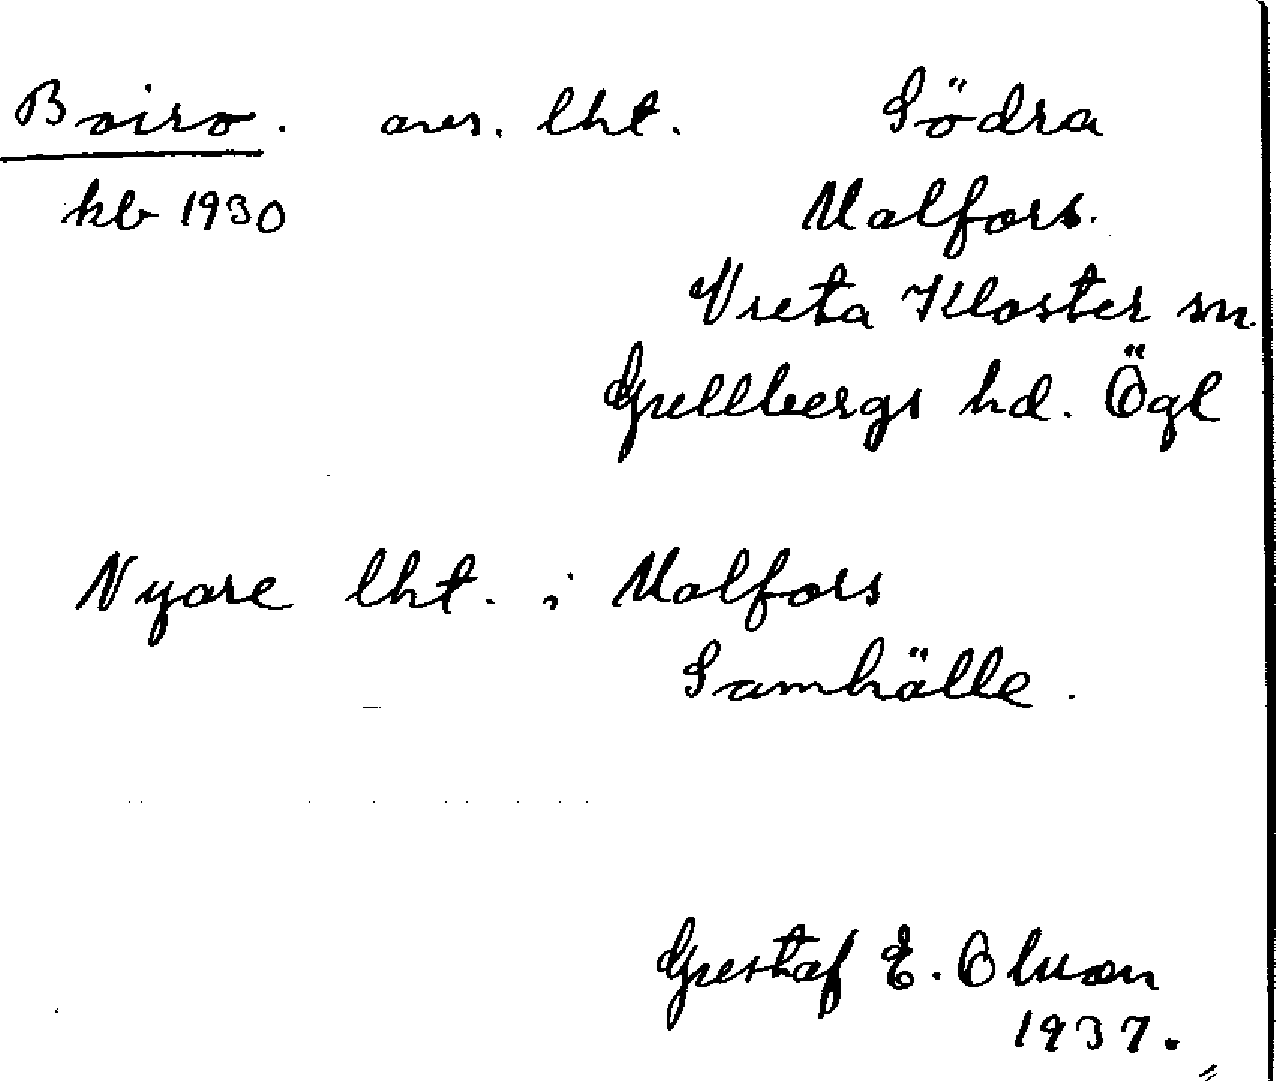 Boiro. avs. lht. Södra
kb 1930 Malfors.
Vreta Kloster sn
Gullbergs hd. Ögl
Nyare lht. i Malfors
Samhälle.
Gustaf E. Olsson
1937.